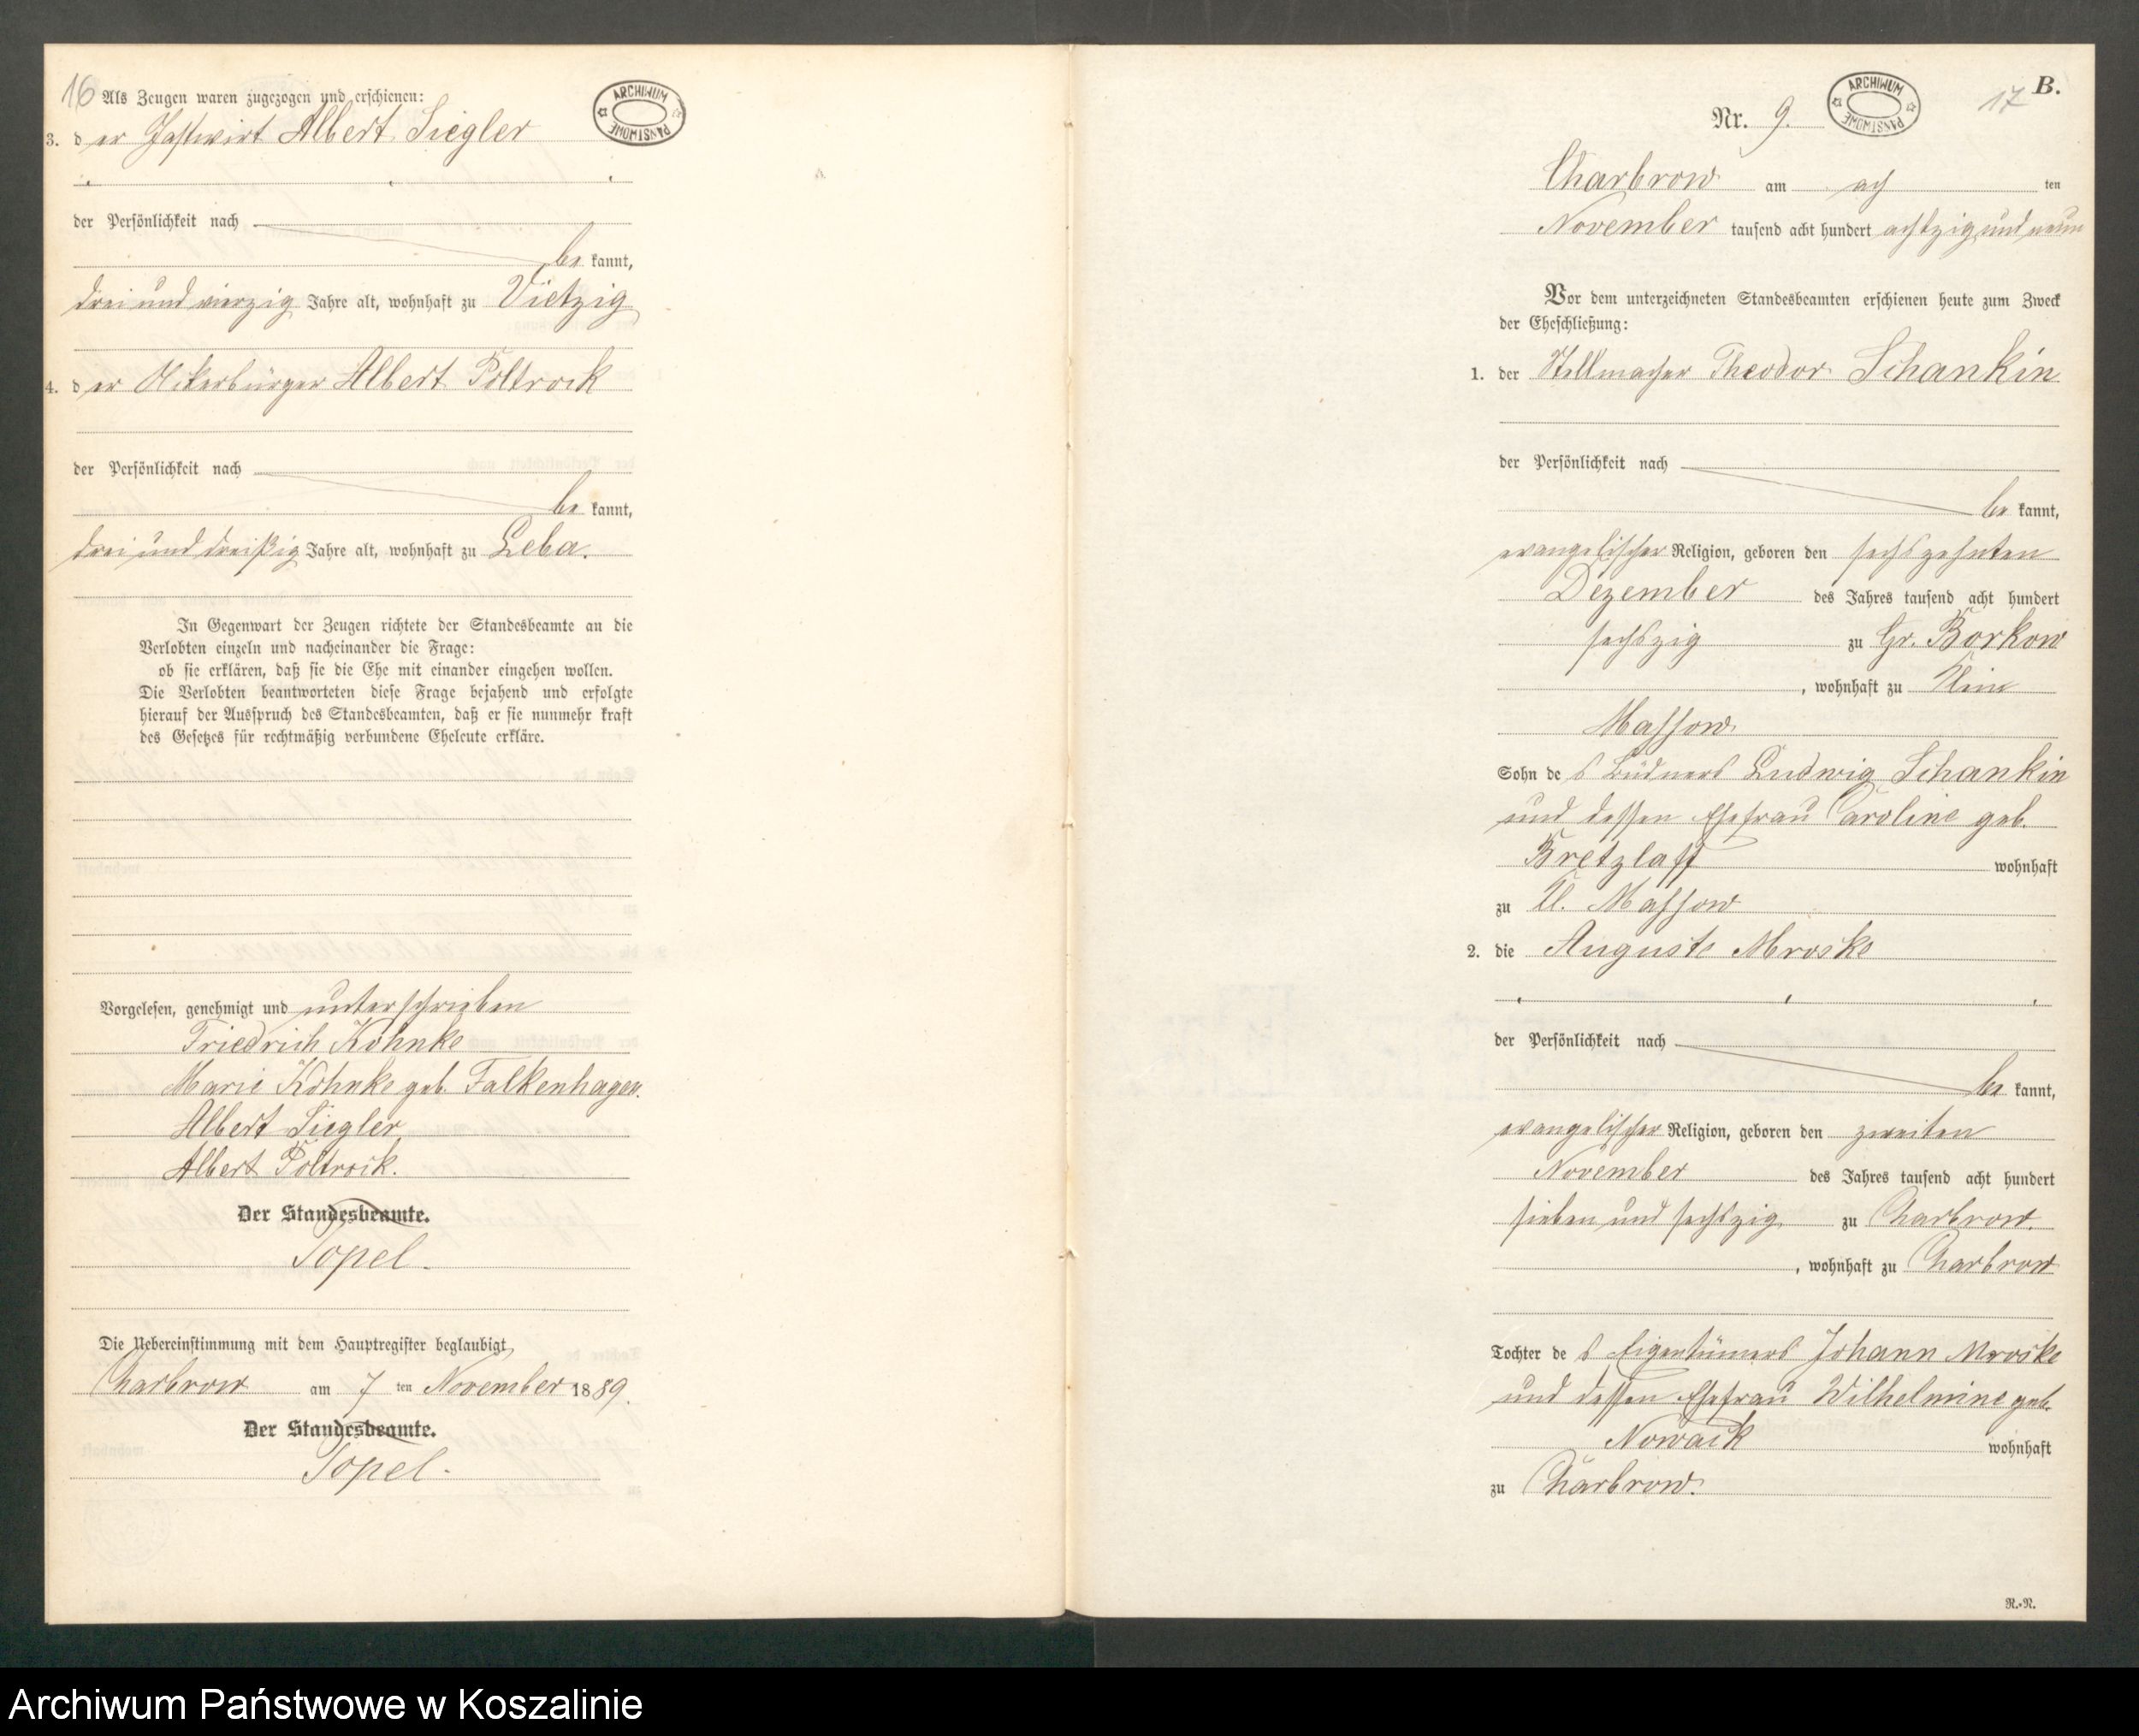 16 Als Zeugen waren zugezogen und erschienen:
3. der Gastwirt Albert Siegler
der Persönlichkeit nach
bekannt,
drei und vierzig Jahre alt, wohnhaft zu Vietzig
4. der Ackerbürger Albert Poltrock
der Persönlichkeit nach
bekannt,
drei und dreißig Jahre alt, wohnhaft zu Leba.
In Gegenwart der Zeugen richtete der Standesbeamte an die
Verlobten einzeln und nacheinander die Frage:
ob sie erklären, daß sie die Ehe mit einander eingehen wollen.
Die Verlobten beantworteten diese Frage bejahend und erfolgte
hierauf der Ausspruch des Standesbeamten, daß er sie nunmehr kraft
des Gesetzes für rechtmäßig verbundene Eheleute erkläre.
Vorgelesen, genehmigt und unterschrieben
Friedrich Kohnke
Marie Kohnke geb. Falkenhagen.
Albert Siegler
Albert Poltrock.
Der Standesbeamte.
Topel.
Die Uebereinstimmung mit dem Hauptregister beglaubigt
Charbrow am 7 ten November 1889.
Der Standesbeamte.
Topel.
ARCHIWUM PAŃSTWOWE
B.
17
Nr. 9.
ARCHIWUM PAŃSTWOWE
Charbrow am ach ten
November tausend acht hundert achtzig und neun
Vor dem unterzeichneten Standesbeamten erschienen heute zum Zweck
der Eheschließung:
1. der Stellmacher Theodor Schankin
der Persönlichkeit nach
bekannt,
evangelischer Religion, geboren den sechszehnten
Dezember des Jahres tausend acht hundert
sechszig zu Gr. Borkow
, wohnhaft zu Klein
Massow.
Sohn des Büdners Ludwig Schankin
und dessen Ehefrau Caroline geb.
Bretzlaff wohnhaft
zu Kl. Massow
2. die Auguste Mroske
der Persönlichkeit nach
bekannt,
evangelischer Religion, geboren den zweiten
November des Jahres tausend acht hundert
sieben und sechszig zu Charbrow.
, wohnhaft zu Charbrow
Tochter des Eigentümers Johann Mroske
und dessen Ehefrau Wilhelmine geb.
Nowack wohnhaft
zu Charbrow.
R.-R.
Archiwum Państwowe w Koszalinie